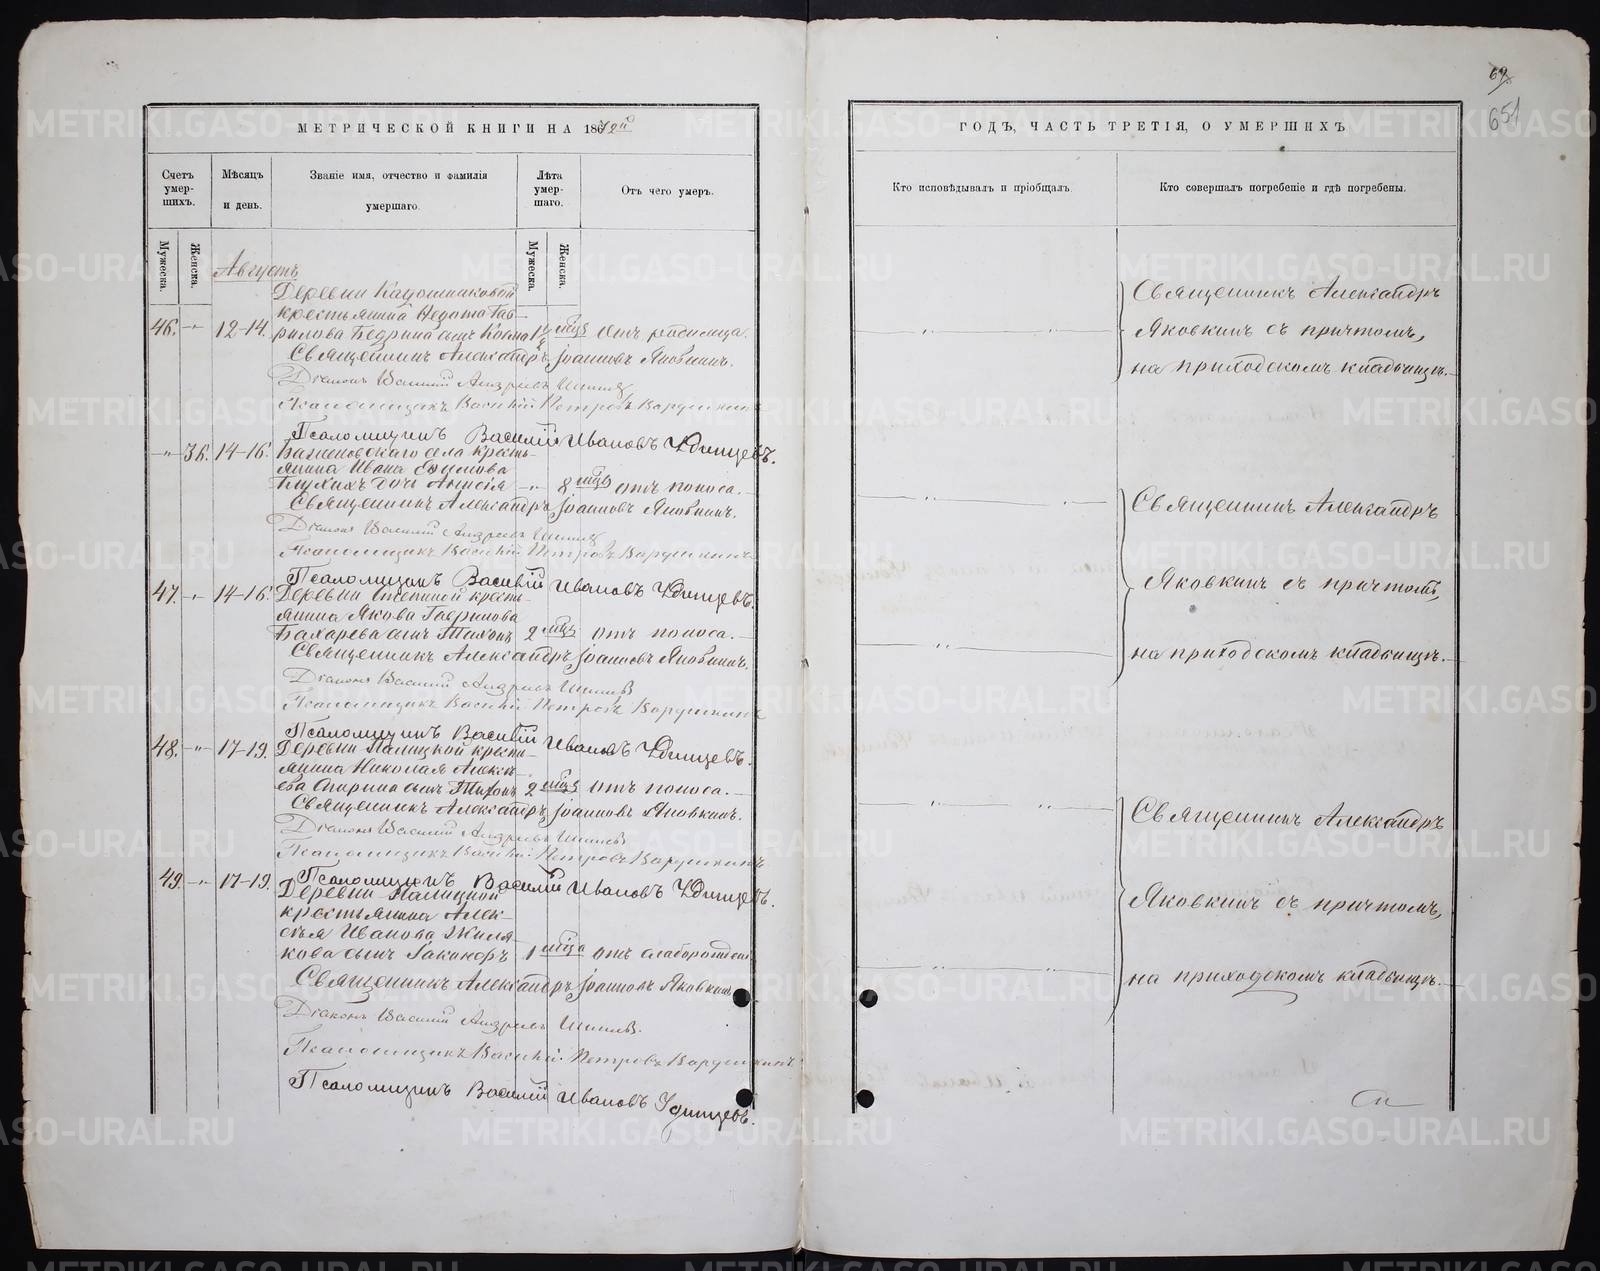 МЕТРИЧЕСКОЙ КНИГИ НА 1872й
Счетъ умер-шихъ.
Мужеска.
Женска.
Мѣсяцъ и день.
Званіе имя, отчество и фамилія умершаго.
Лѣта умер-шаго.
Мужеска.
Женска.
Отъ чего умеръ.
Августъ
Деревни
крестьянина Ѳедота Гав-
46. -"- 12-14. рилова Бедрина сынъ Козма 1½ мѣсяца Отъ родимца.
Священникъ Александръ Іоанновъ Яковкинъ.
Діаконъ Василій Андреевъ
Псаломщикъ Василій Петровъ Варушкинъ
Псаломщикъ Василій Ивановъ Удинцевъ.
-"- 36. 14-16. Баженовскаго села кресть-
янина Ивана Ефимова
Глухихъ дочь Анисія -"- 8 мѣсц. отъ поноса.
Священникъ Александръ Іоанновъ Яковкинъ.
Діаконъ Василій Андреевъ
Псаломщикъ Василій Петровъ Варушкинъ
Псаломщикъ Василій Ивановъ Удинцевъ.
47. -"- 14-16. Деревни кресть-
янина Якова Гаврилова
Бахарева сынъ Тихонъ 2 мѣсц. отъ поноса.
Священникъ Александръ Іоанновъ Яковкинъ.
Діаконъ Василій Андреевъ
Псаломщикъ Василій Петровъ Варушкинъ
Псаломщикъ Василій Ивановъ Удинцевъ.
48. -"- 17-19. Деревни Палицкой кресть-
янина Николая Алексѣ-
ева сынъ Тихонъ 2 мѣсц. отъ поноса.
Священникъ Александръ Іоанновъ Яковкинъ.
Діаконъ Василій Андреевъ
Псаломщикъ Василій Петровъ Варушкинъ
Псаломщикъ Василій Ивановъ Удинцевъ.
49. -"- 17-19. Деревни Палицкой
крестьянина Алек-
сѣя Иванова Жиля-
кова сынъ 1 мѣсца отъ слаборожден
Священникъ Александръ Іоанновъ Яковкинъ
Діаконъ Василій Андреевъ
Псаломщикъ Василій Петровъ Варушкинъ
Псаломщикъ Василій Ивановъ Удинцевъ.
69.
651
ГОДЪ, ЧАСТЬ ТРЕТІЯ, О УМЕРШИХЪ
Кто исповѣдывалъ и пріобщалъ.
Кто совершалъ погребеніе и гдѣ погребены.
Священникъ Александръ
Яковкинъ съ причтомъ,
на приходскомъ кладбищѣ.
Священникъ Александръ
Яковкинъ съ причтомъ,
на приходскомъ кладбищѣ.
Священникъ Александръ
Яковкинъ съ причтомъ,
на приходскомъ кладбищѣ.
METRIKI.GASO-URAL.RU